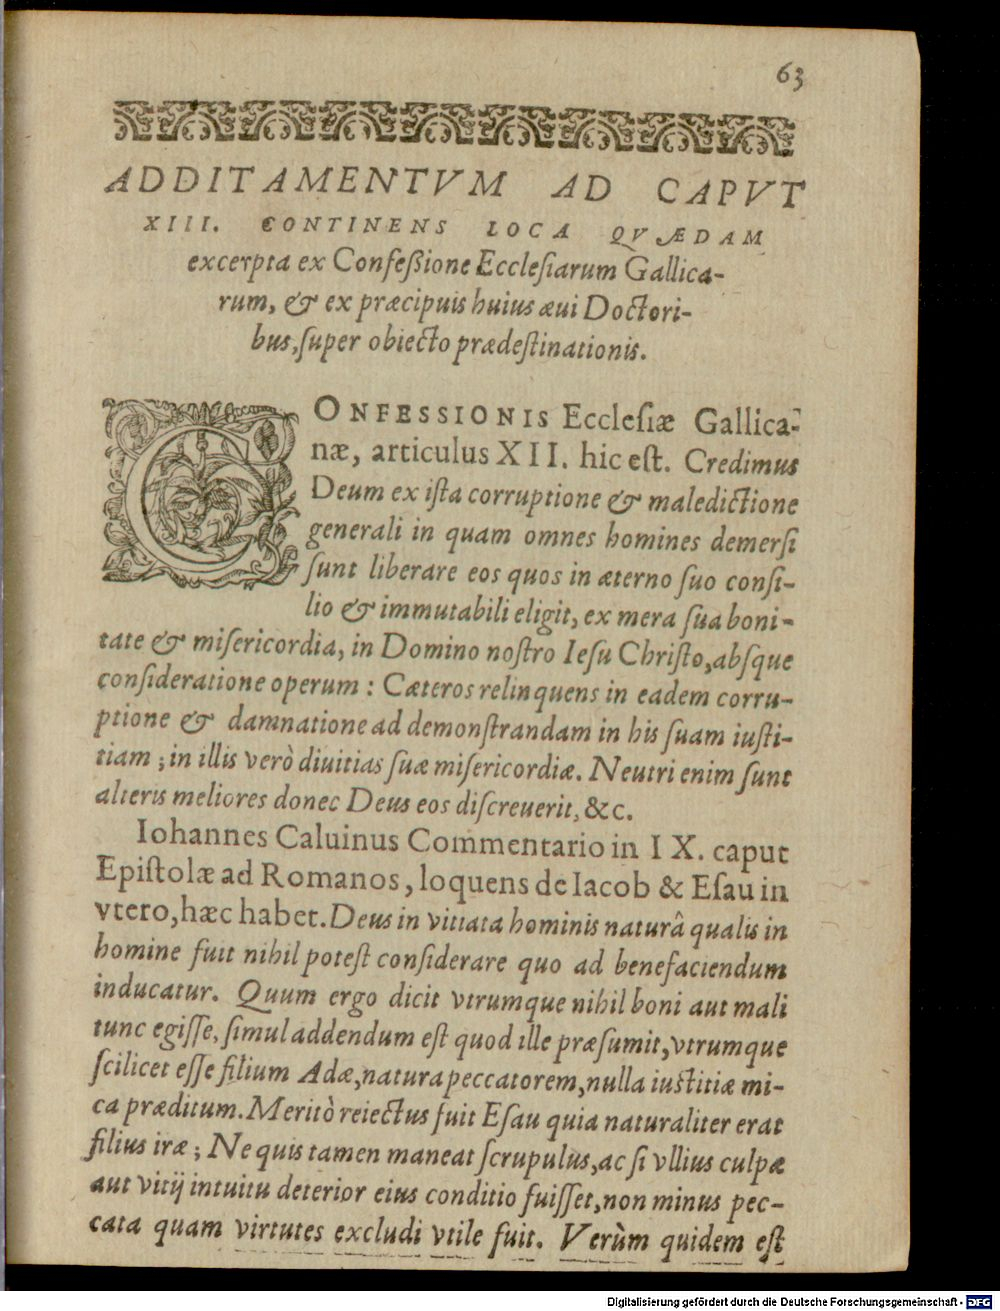 63
ADDITAMENTVM AD CAPVT
XIII. CONTINENS LOCA QVÆDAM
excerpta ex Confeßione Ecclesiarum Gallica-
rum, & ex præcipuis huius æui Doctori-
bus, super obiecto prædestinationis.
CONFESSIONIS Ecclesiæ Gallica-
næ, articulus XII. hic est. Credimus
Deum ex ista corruptione & maledictione
generali in quam omnes homines demersi
sunt liberare eos quos in æterno suo consi-
lio & immutabili eligit, ex mera sua boni-
tate & misericordia, in Domino nostro Iesu Christo, absque
consideratione operum : Cæteros relinquens in eadem corru-
ptione & damnatione ad demonstrandam in his suam iusti-
tiam ; in illis verò diuitias suæ misericordiæ. Neutri enim sunt
alteris meliores donec Deus eos discreuerit, &c.
Iohannes Caluinus Commentario in IX. caput
Epistolæ ad Romanos, loquens de Iacob & Esau in
vtero, hæc habet. Deus in vitiata hominis naturâ qualis in
homine fuit nihil potest considerare quo ad benefaciendum
inducatur. Quum ergo dicit vtrumque nihil boni aut mali
tunc egisse, simul addendum est quod ille præsumit, vtrumque
scilicet esse filium Adæ, natura peccatorem, nulla iustitiæ mi-
ca præditum. Meritò reiectus fuit Esau quia naturaliter erat
filius iræ ; Ne quis tamen maneat scrupulus, ac si vllius culpæ
aut vitij intuitu deterior eius conditio fuisset, non minus pec-
cata quam virtutes excludi vtile fuit. Verùm quidem est
Digitalisierung gefördert durch die Deutsche Forschungsgemeinschaft - DFG